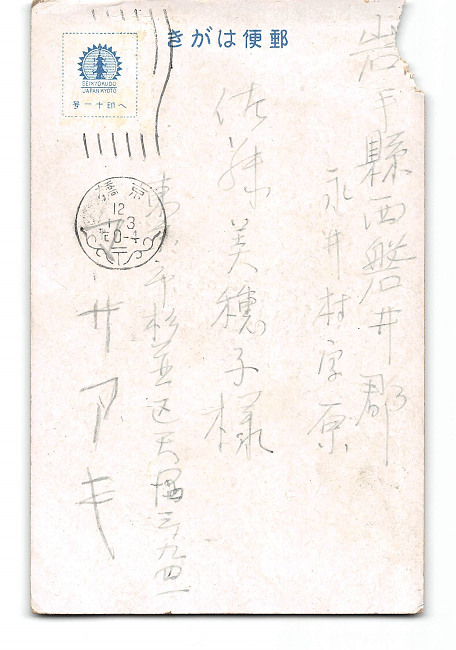 郵便はがき
SEIKYOKUDO
JAPAN KYOTO
へ印十一号
京橋
12
3
0-4
岩手縣西磐井郡
永井村字原
佐藤美穂子様
東京市杉並区天沼三ノ九四一
マサアキ